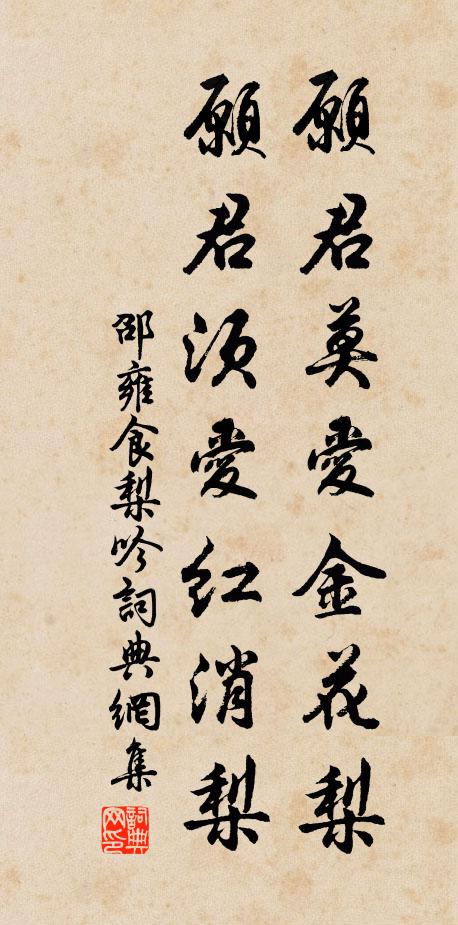 願君莫愛金花梨
願君須愛紅消梨
邵雍食梨吟詞典網集
詞典网印